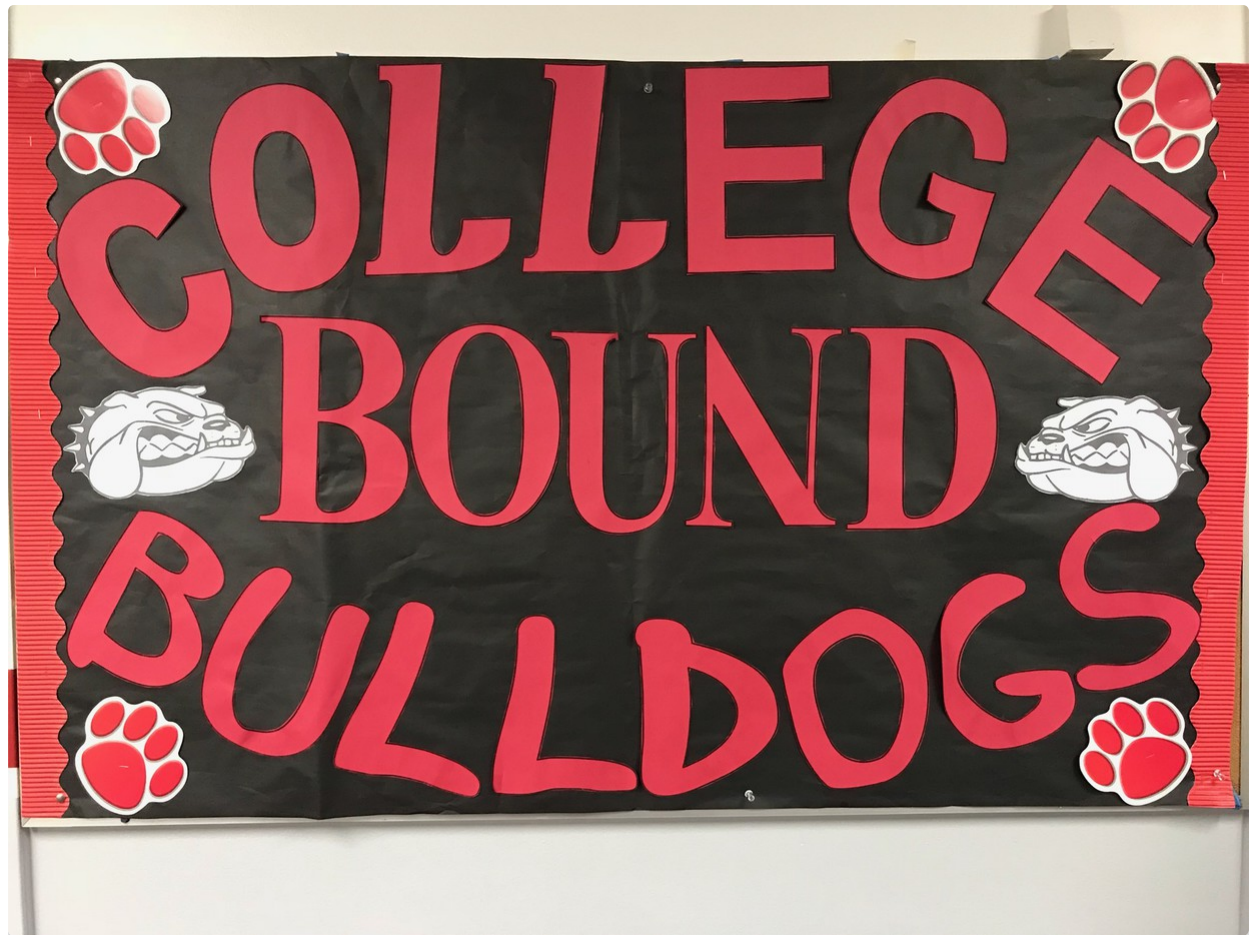 COLLEGE
BOUND
BULLDOGS